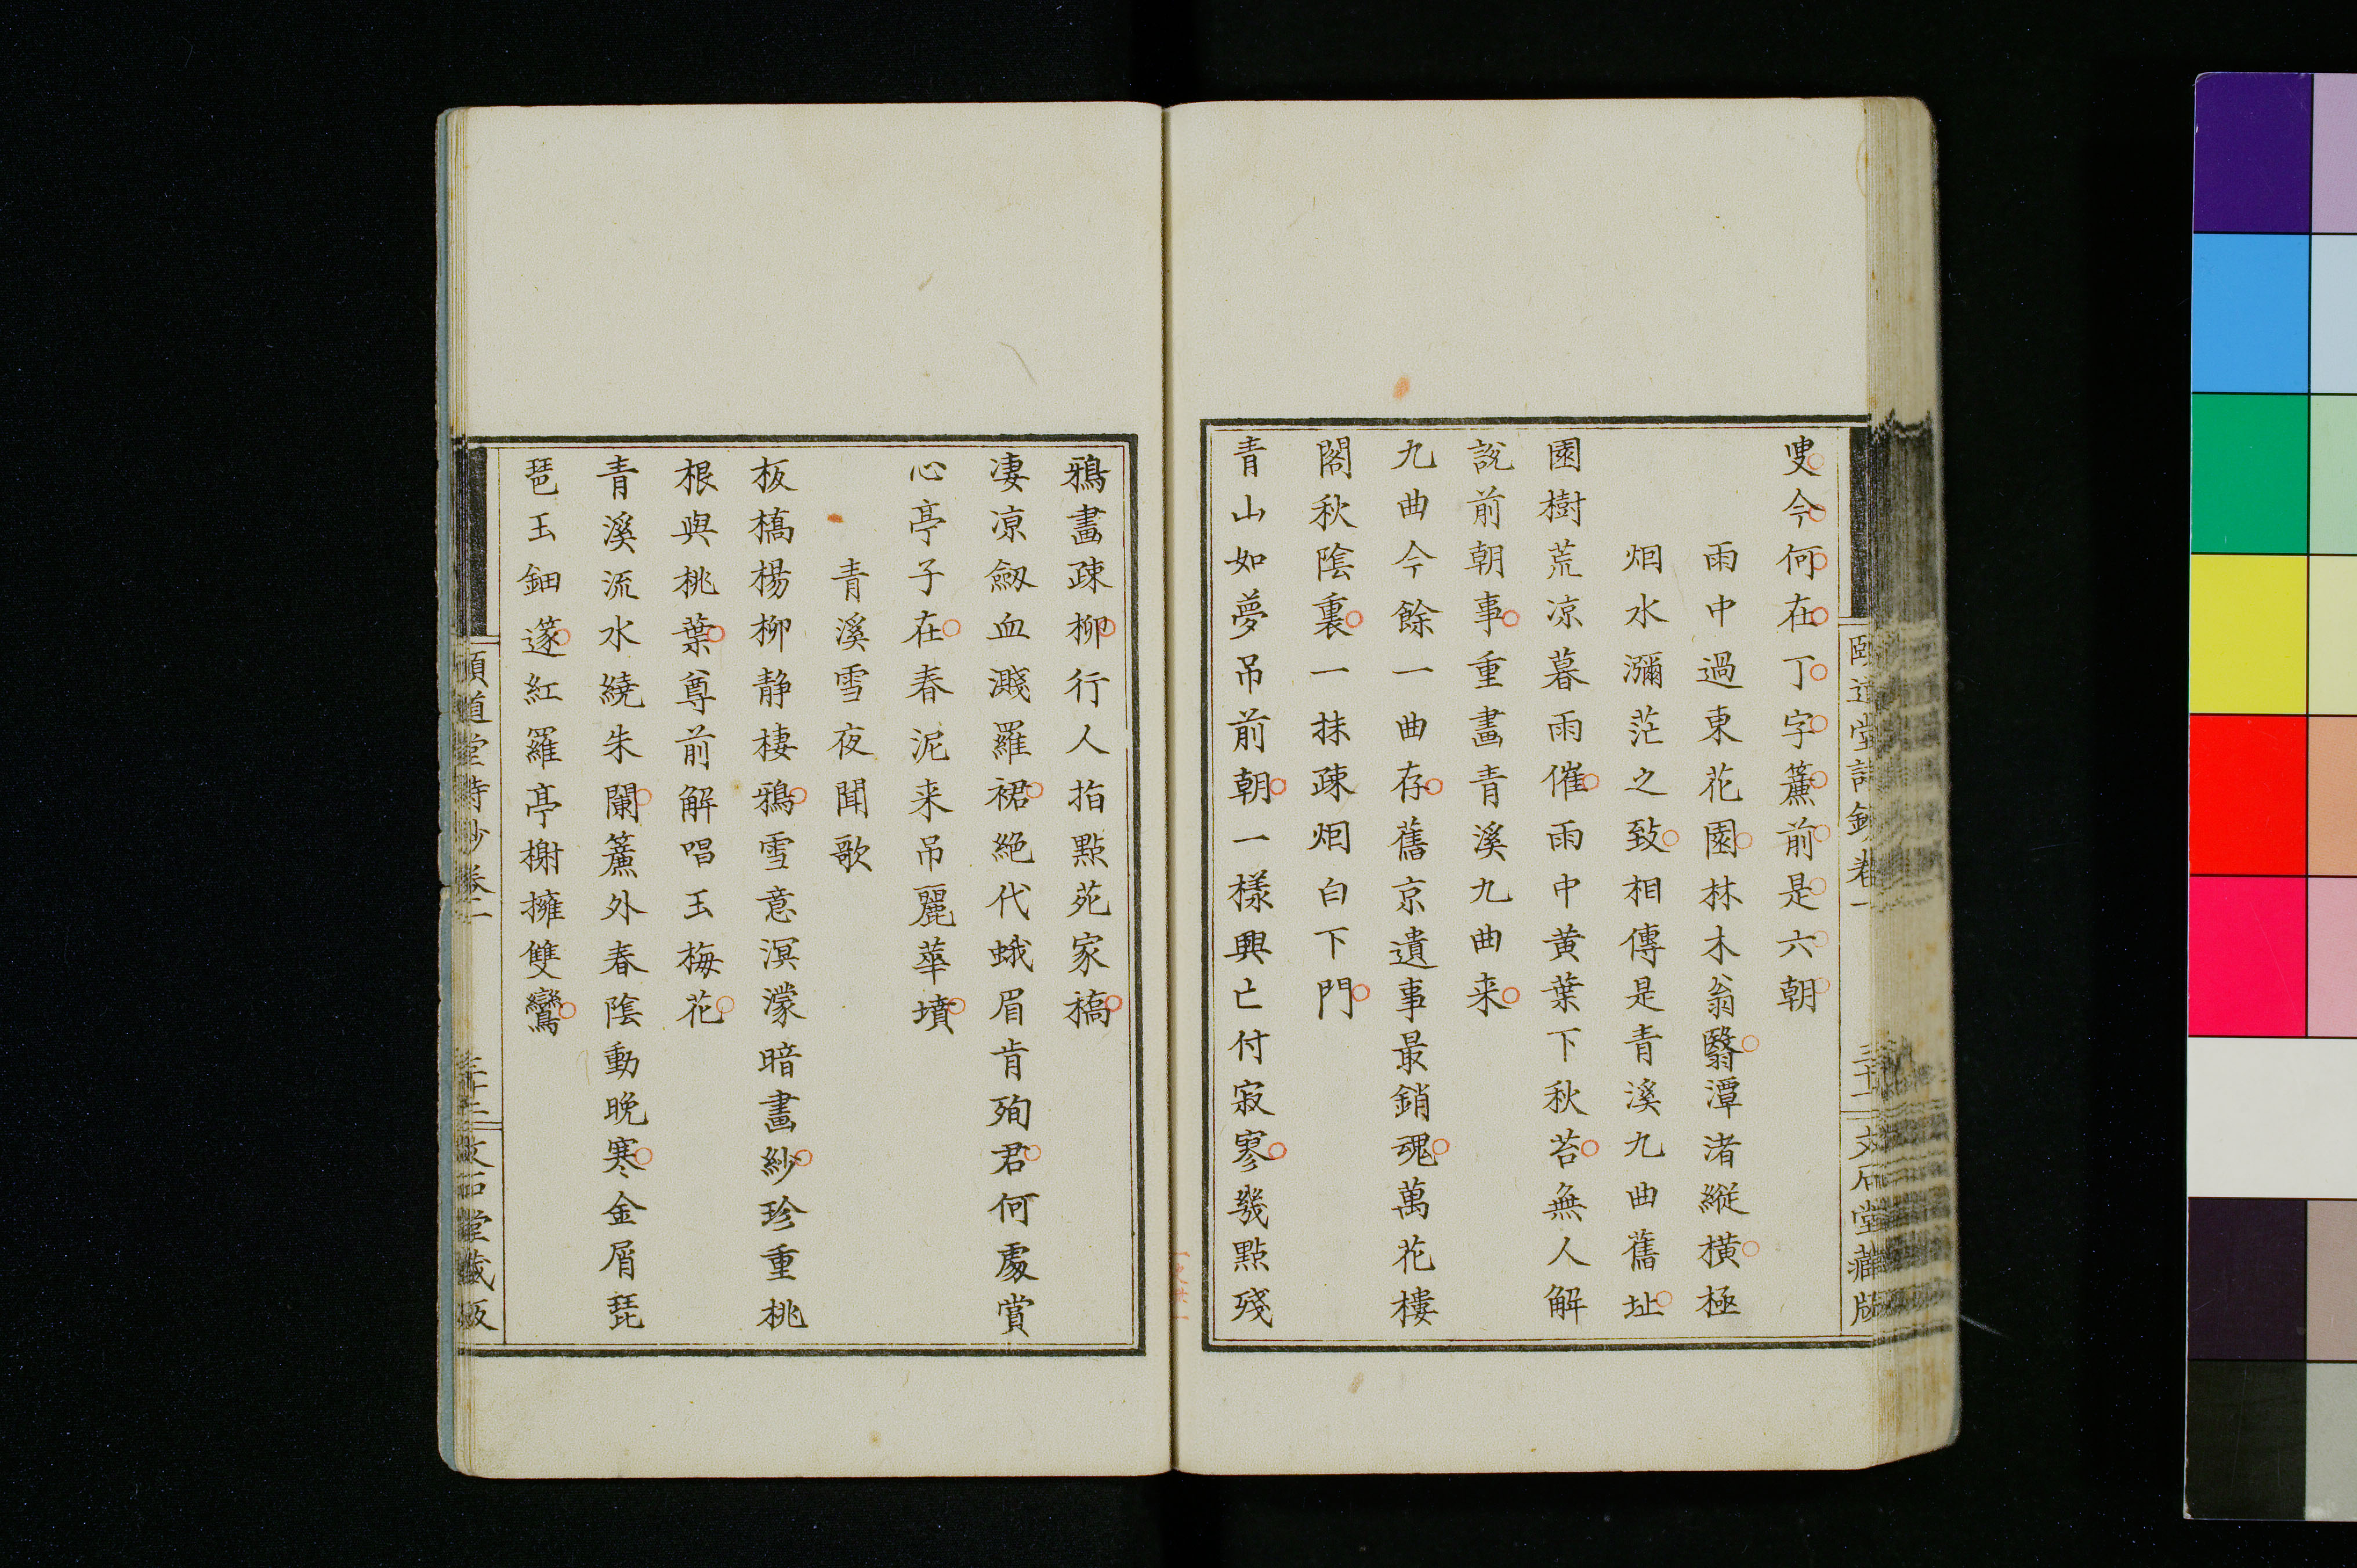 叟今何在丁字簾前是六朝
雨中過東花園林木翁翳潭渚縱橫極
烟水瀰茫之致相傳是青溪九曲舊址
園樹荒凉暮雨催雨中黄葉下秋苔無人解
說前朝事重畫青溪九曲来
九曲今餘一曲存舊京遺事最銷魂萬花樓
閣秋陰裏一抹疎烟白下門
青山如夢吊前朝一樣興亡付寂寥幾點殘
鴉畫疎柳行人指點苑家橋
凄凉劔血濺羅裙絶代蛾眉肯殉君何處賞
心亭子在春泥来吊麗華墳
青溪雪夜聞歌
板橋楊柳静棲鴉雪意溟濛暗畫紗珍重桃
根與桃葉尊前解唱玉梅花
青溪流水繞朱闌簾外春陰動晚寒金屑琵
琶玉鈿篴紅羅亭榭擁雙鸞
頤道堂詩鈔卷二